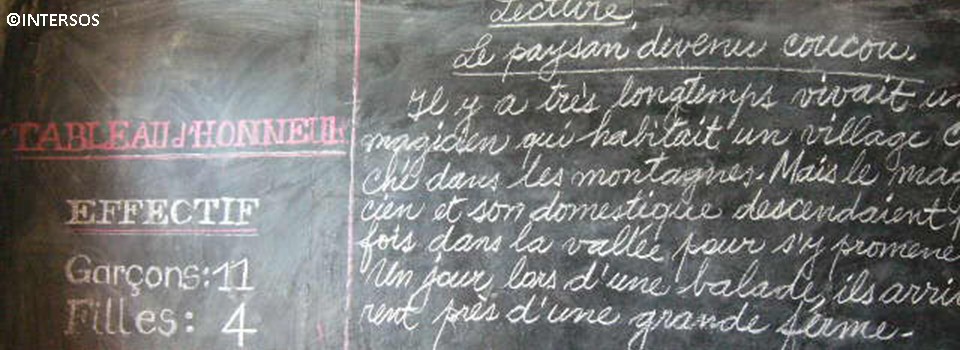 ©INTERSOS
TABLEAU d'HONNEUR
EFFECTIF
Garçons: 11
Filles: 4
Lecture
Le paysan devenu coucou.
Il y a très longtemps vivait u
magicien qui habitait un village c
ché dans les montagnes. Mais le mag
cien et son domestique descendaient p
fois dans la vallée pour s'y promene
Un jour, lors d'une balade, ils arri
rent près d'une grande ferme.